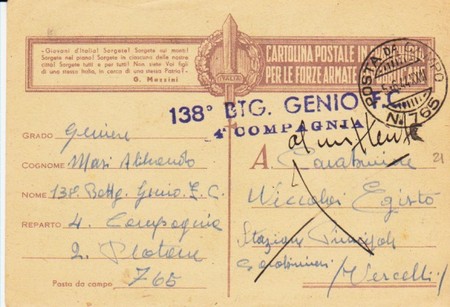 "Giovani d'Italia! Sorgete! Sorgete sui monti!
Sorgete nel piano! Sorgete in ciascuna delle nostre
città! Sorgete tutti e per tutti! Non siete Voi figli
di una stessa Italia, in cerca di una stessa Patria?"
G. Mazzini
CARTOLINA POSTALE IN
PER LE FORZE ARMATE
POSTA DA
N. 765
138° BTG. GENIO T.C.
4ª COMPAGNIA
GRADO Geniere
COGNOME Masi
NOME 138 Battg. Genio T. C.
REPARTO 4. Compagnia
2. Plotone
Posta da campo: 765
al mittente
A Carabiniere
Egisto
Stazione Principale
Carabinieri
(Vercelli)
21